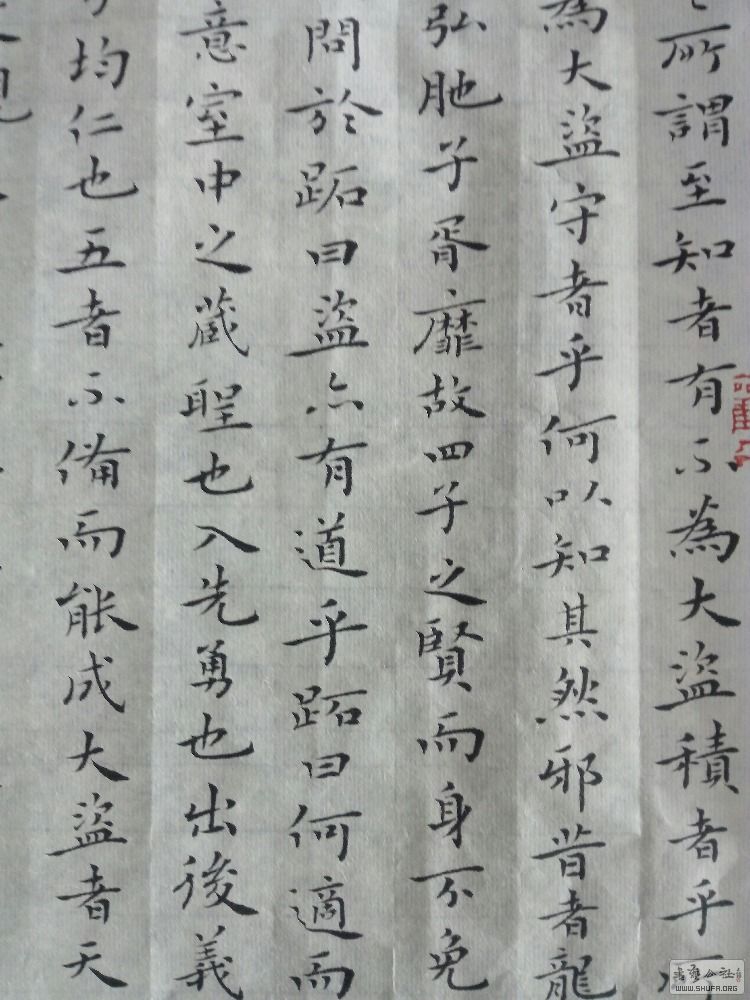 所謂至知者有不為大盜積者乎
為大盜守者乎何以知其然邪昔者龍
弘胣子胥靡故四子之賢而身不免
問於跖曰盜亦有道乎跖曰何適而
意室中之藏聖也入先勇也出後義
均仁也五者不備而能成大盜者天
書法公社
WWW.SHUFA.ORG